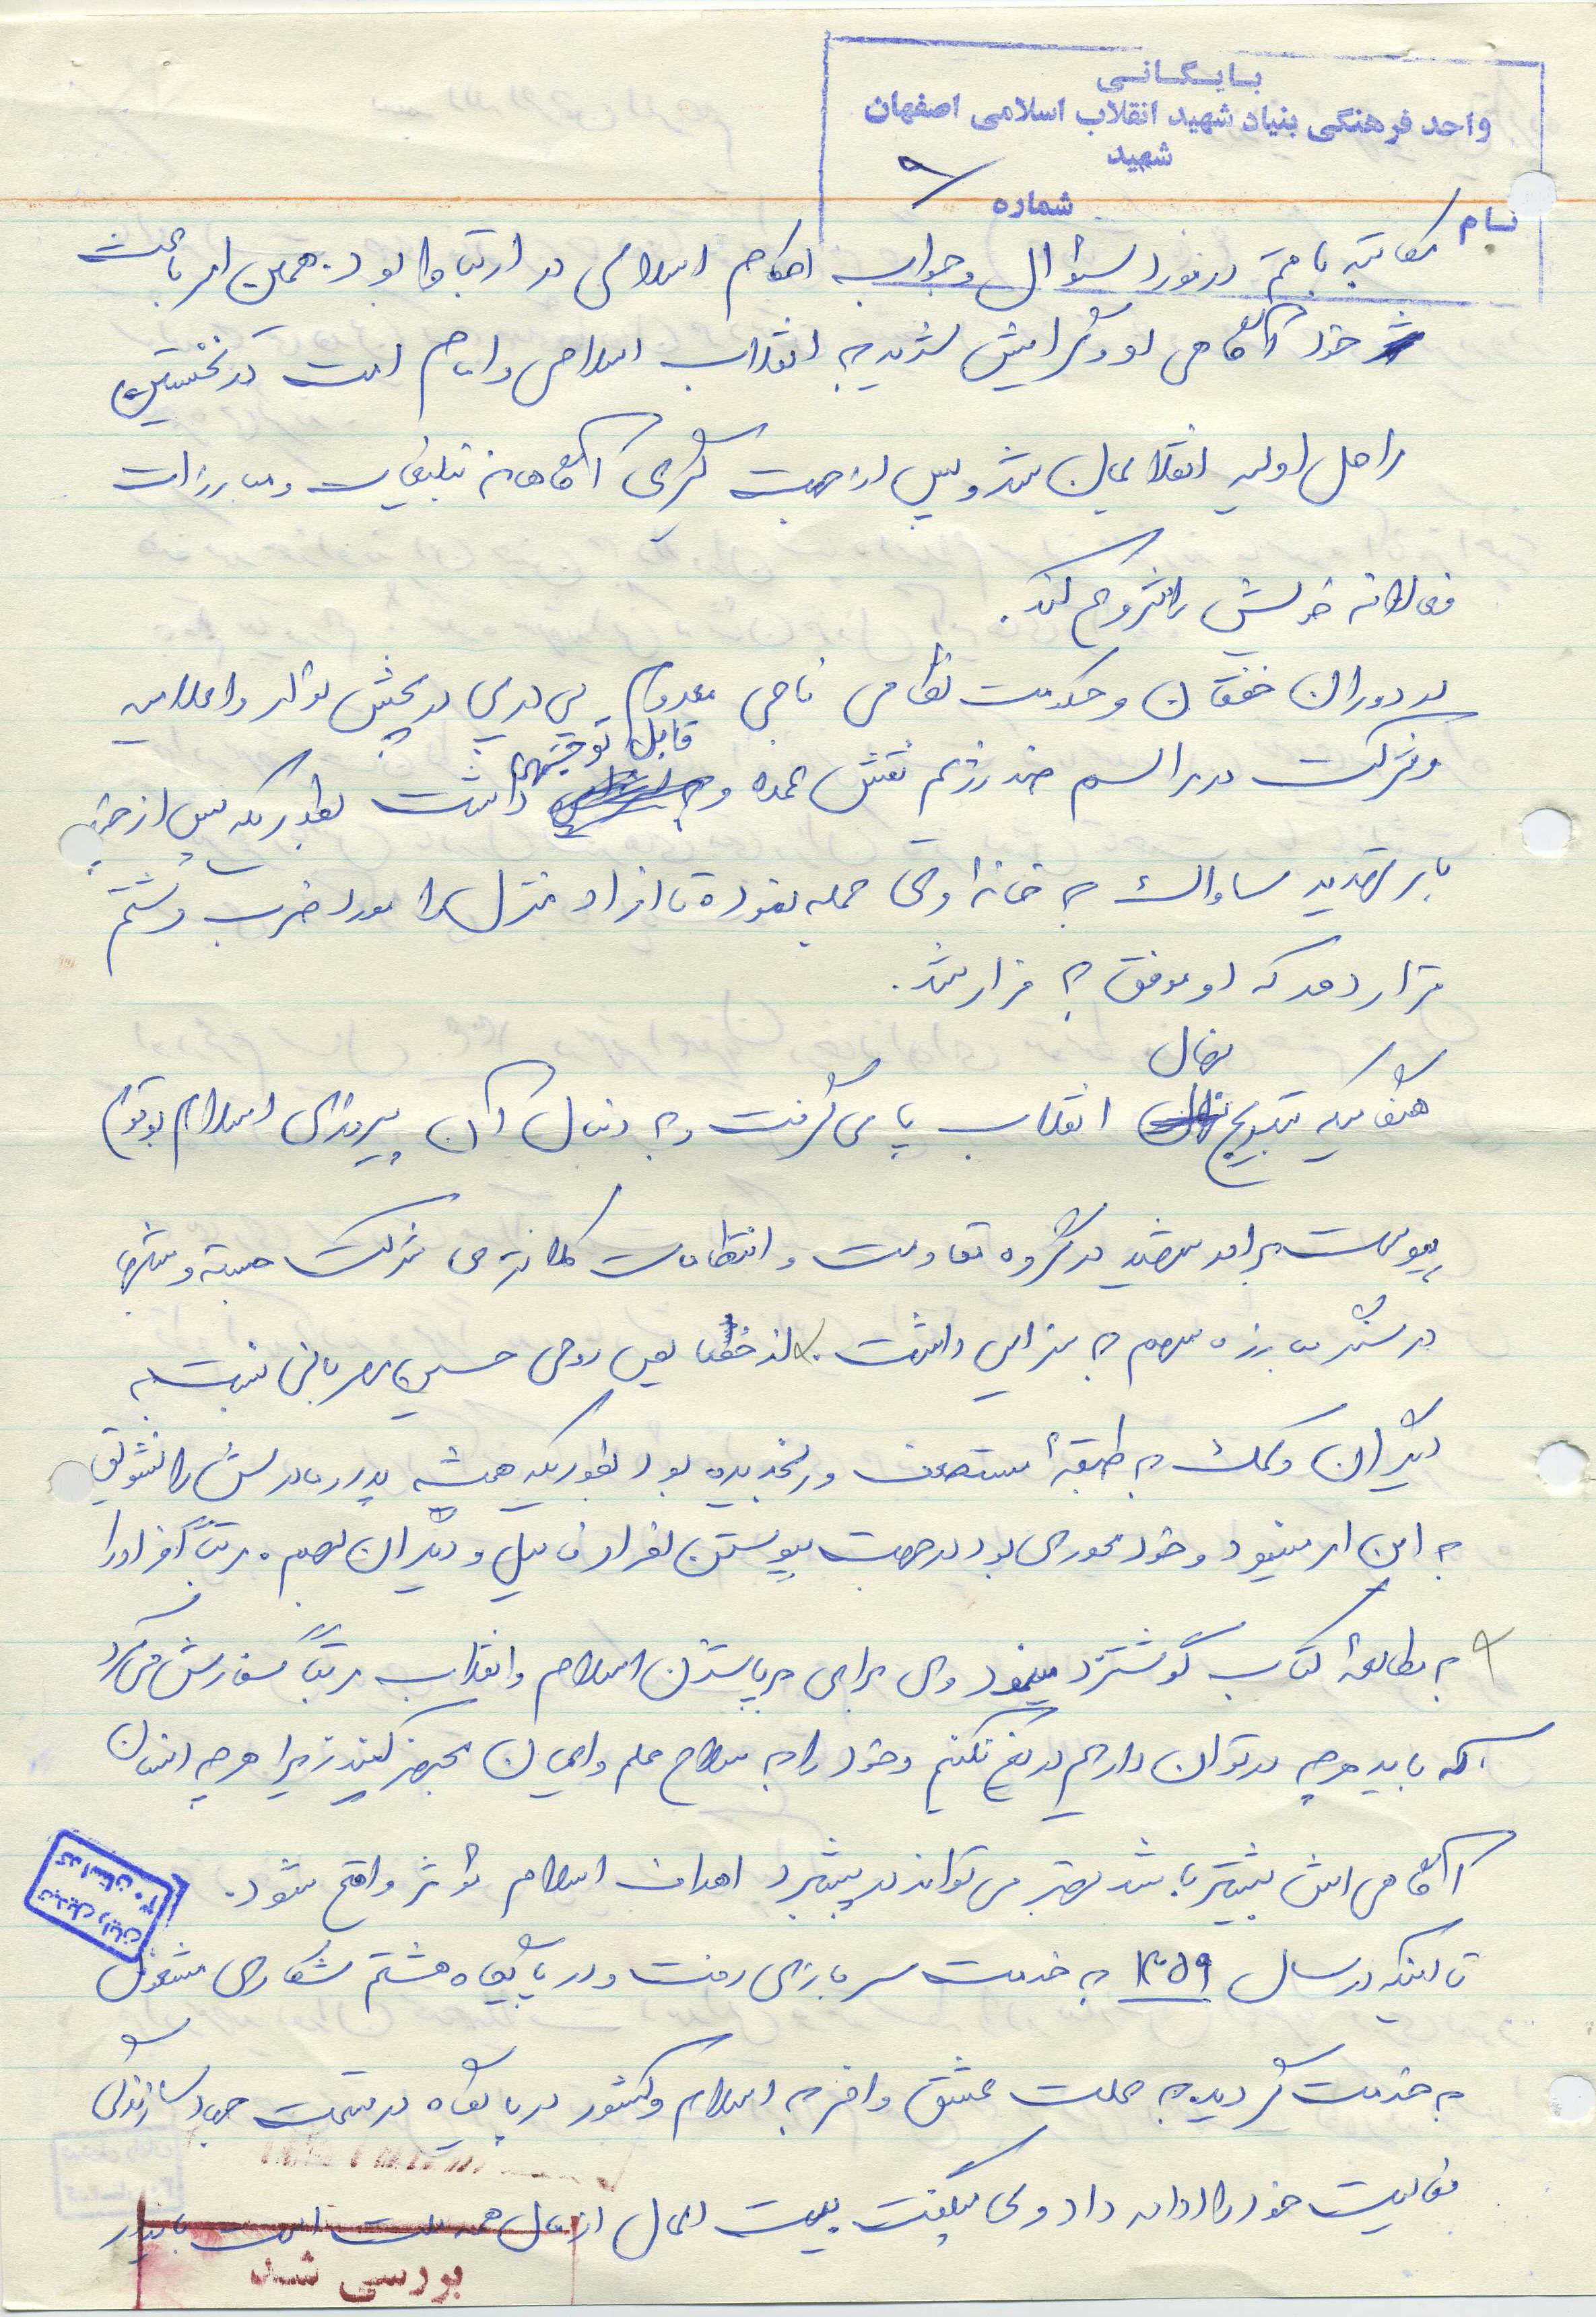 بایگانی
واحد فرهنگی بنیاد شهید انقلاب اسلامی اصفهان
شهید
شماره
نام
مکاتبه با قم در مورد سئوال و جواب احکام اسلامی در ارتباط بود. همین امر باعث
خود آگاهی او و گرایش شدید به انقلاب اسلامی و امام امت در نخستین
مراحل اولیه انقلابمان شد و پس از جهت گیری آگاهانه تبلیغات و مبارزات
فعالانه خویش را شروع کند.
در دوران خفقان و حکومت نظامی شاهی معدوم پی در پی در پخش نوار و اعلامیه
و شرکت در مراسم ضد رژیم نقش عمده و قابل توجهی داشت بطوریکه پس از چند
بار تهدید ساواک به خانه اوهی حمله نموده تا افراد منزل را مورد ضرب و شتم
قرار دهد که او موفق به فرار شد.
هنگامیکه بتدریج نهال انقلاب پا می گرفت و به دنبال آن پیروزی اسلام بوقوع
پیوست برادر شهید در گروه تعاونت و انتظامات کلانتری شرکت جسته و شبها
در سنگر مبارزه سهم به سزایی داشت. از خصایص روحی حسین مهربانی نسبت به
دیگران و کمک به طبقهٔ مستضعف و رنجدیده بود بطوریکه همیشه پدر و مادرش را تشویق
به این امر مینمود و خود محوری بود در جهت پیوستن افراد فامیل و دیگران بهم. مرتباً افراد را
به مطالعهٔ کتاب گوشزد مینمود وی برای برپاشدن اسلام و انقلاب مرتباً سفارش می‌کرد
که باید هر چه در توان داریم دریغ نکنیم و خود را به سلاح علم و ایمان مجهز کنید زیرا هر چه انسان
آگاهی اش بیشتر باشد بهتر می تواند در پیشبرد اهداف اسلام مؤثر واقع شود.
تا اینکه در سال ۱۳۵۹ به خدمت سربازی رفت و در پایگاه هشتم شکاری مشغول
به خدمت گردید. به علت عشق وافر به اسلام و کشور در پایگاه در قسمت جهاد سازندگی
فعالیت خود را ادامه داد و می میگفت بیت المال از مال همه ملت است باید در
بررسی شد